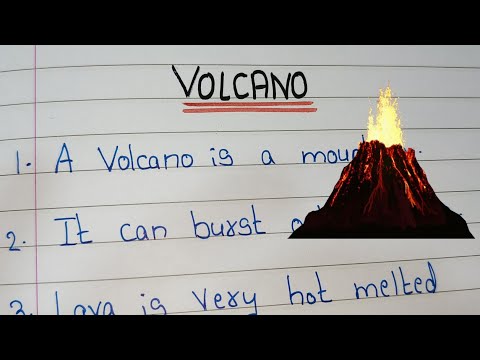 VOLCANO
1. A Volcano is a
2. It can burst
3. Lava is very hot melted